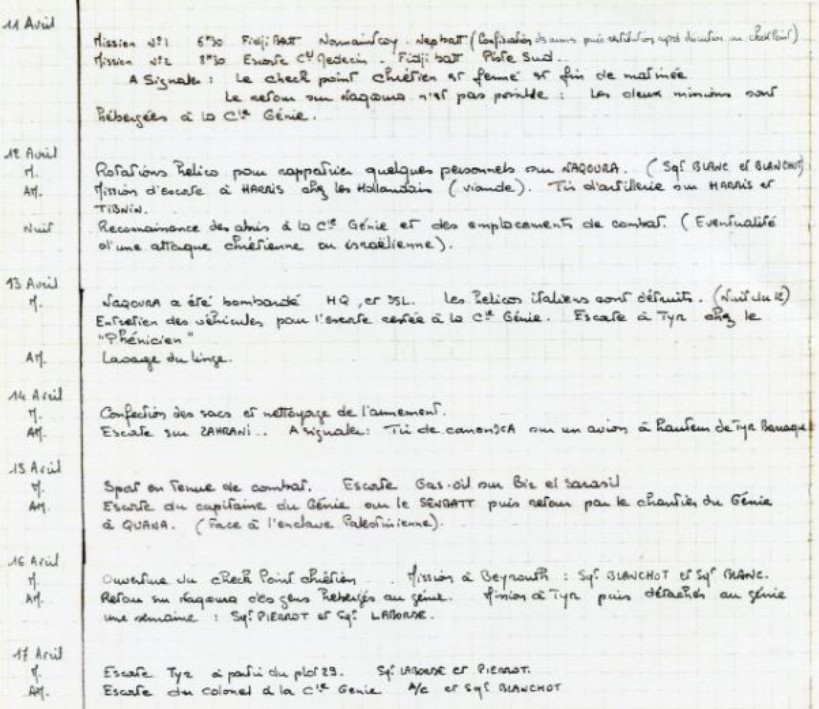 11 Avril
Mission N°1 6H30 Fidjibatt Normaincoy. Nepbatt (Confiscation des armes puis restitution après discution au check Point)
Mission N°2 8H30 Escorte Ct Medecin. Fidji batt Piste Sud..
A Signaler : Le check point Chrétien est fermé en fin de matinée
Le retour sur Naqoura n'est pas possible : Les deux missions sont
hébergées à la Cie Génie.
12 Avril
M. Rotations hélico pour rappatrier quelques personnels sur NAQOURA. (Sgt BLANC et BLANCHOT)
AM. Mission d'escorte à HARRIS chez les Hollandais (viande). Tir d'artillerie sur HARRIS et
TIBNIN.
Nuit Reconnaissance des abris à la Cie Génie et des emplacements de combat. (Eventualité
d'une attaque chrétienne ou israëlienne).
13 Avril
M. NAQOURA a été bombardé HQ, et SSL. Les hélicos italiens sont détruits. (Nuit du 12)
Entretien des véhicules pour l'escorte restée à la Cie Génie. Escorte à Tyr chez le
"Phénicien"
AM. Lavage du linge.
14 Avril
M. Confection des sacs et nettoyage de l'armement.
AM. Escorte sur ZAHRANI.. A signaler : Tir de canon SCA sur un avion à hauteur de Tyr Barraque
15 Avril
M. Sport en tenue de combat. Escorte Gas-oil sur Bir el Sanasil
AM. Escorte du capitaine du Génie sur le SENBATT puis retour par le chantier du Génie
à QUANA. (Face à l'enclave Palestinienne).
16 Avril
M. Ouverture du check Point chrétien . Mission à Beyrouth : Sgt BLANCHOT et Sgt BLANC.
AM. Retour sur Naqoura des gens hébergés au génie. Mission à Tyr puis détachés au génie
une semaine : Sgt PIERROT et Sgt LABORDE.
17 Avril
M. Escorte Tyr à partir du plot 29. Sgt LABORDE et PIERROT.
AM. Escorte du Colonel à la Cie Genie A/C et Sgt BLANCHOT